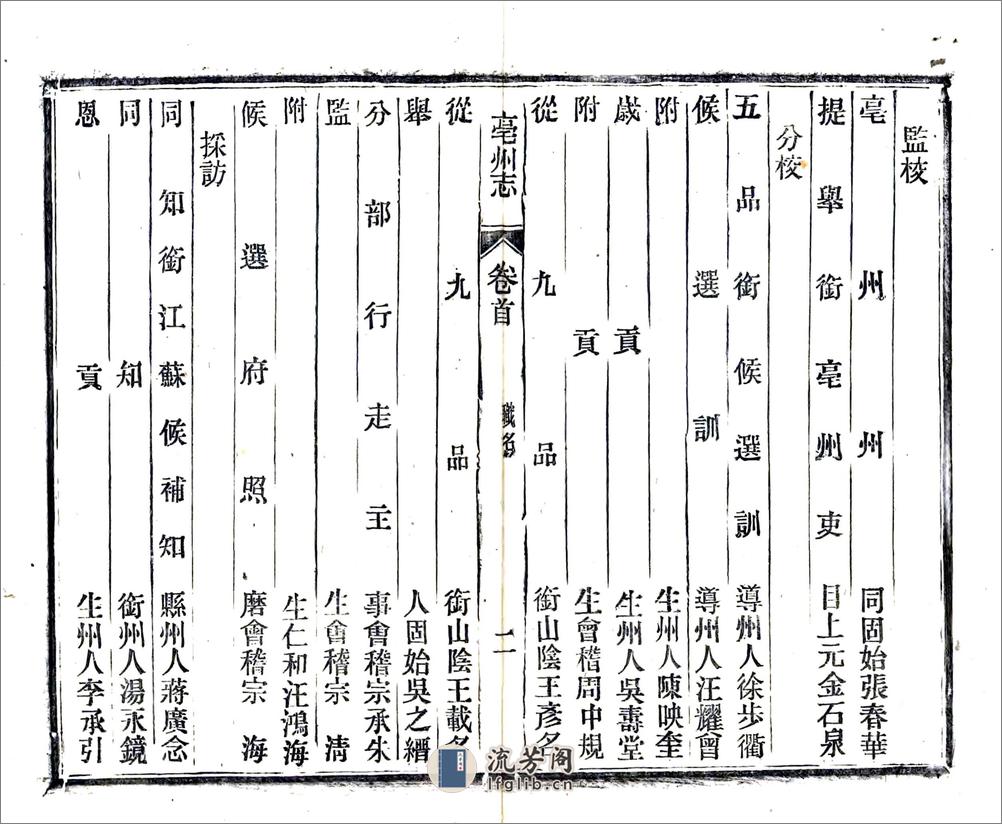 監校
亳州州同固始張春華
提舉銜亳州吏目上元金石泉
分校
五品銜候選訓導州人徐步衢
候選訓導州人汪耀曾
附生州人陳映奎
歲貢生州人吳壽堂
附貢生會稽周中規
從九品銜山陰王彥名
亳州志 卷首 職名 二
從九品銜山陰王載名
舉人固始吳之縉
分部行走主事會稽宗承朱
監生會稽宗清
附生仁和汪鴻海
候選府照磨會稽宗海
採訪
同知銜江蘇候補知縣州人蔣廣念
同知銜州人湯永鏡
恩貢生州人李承引
流芳阁
lfglib.cn